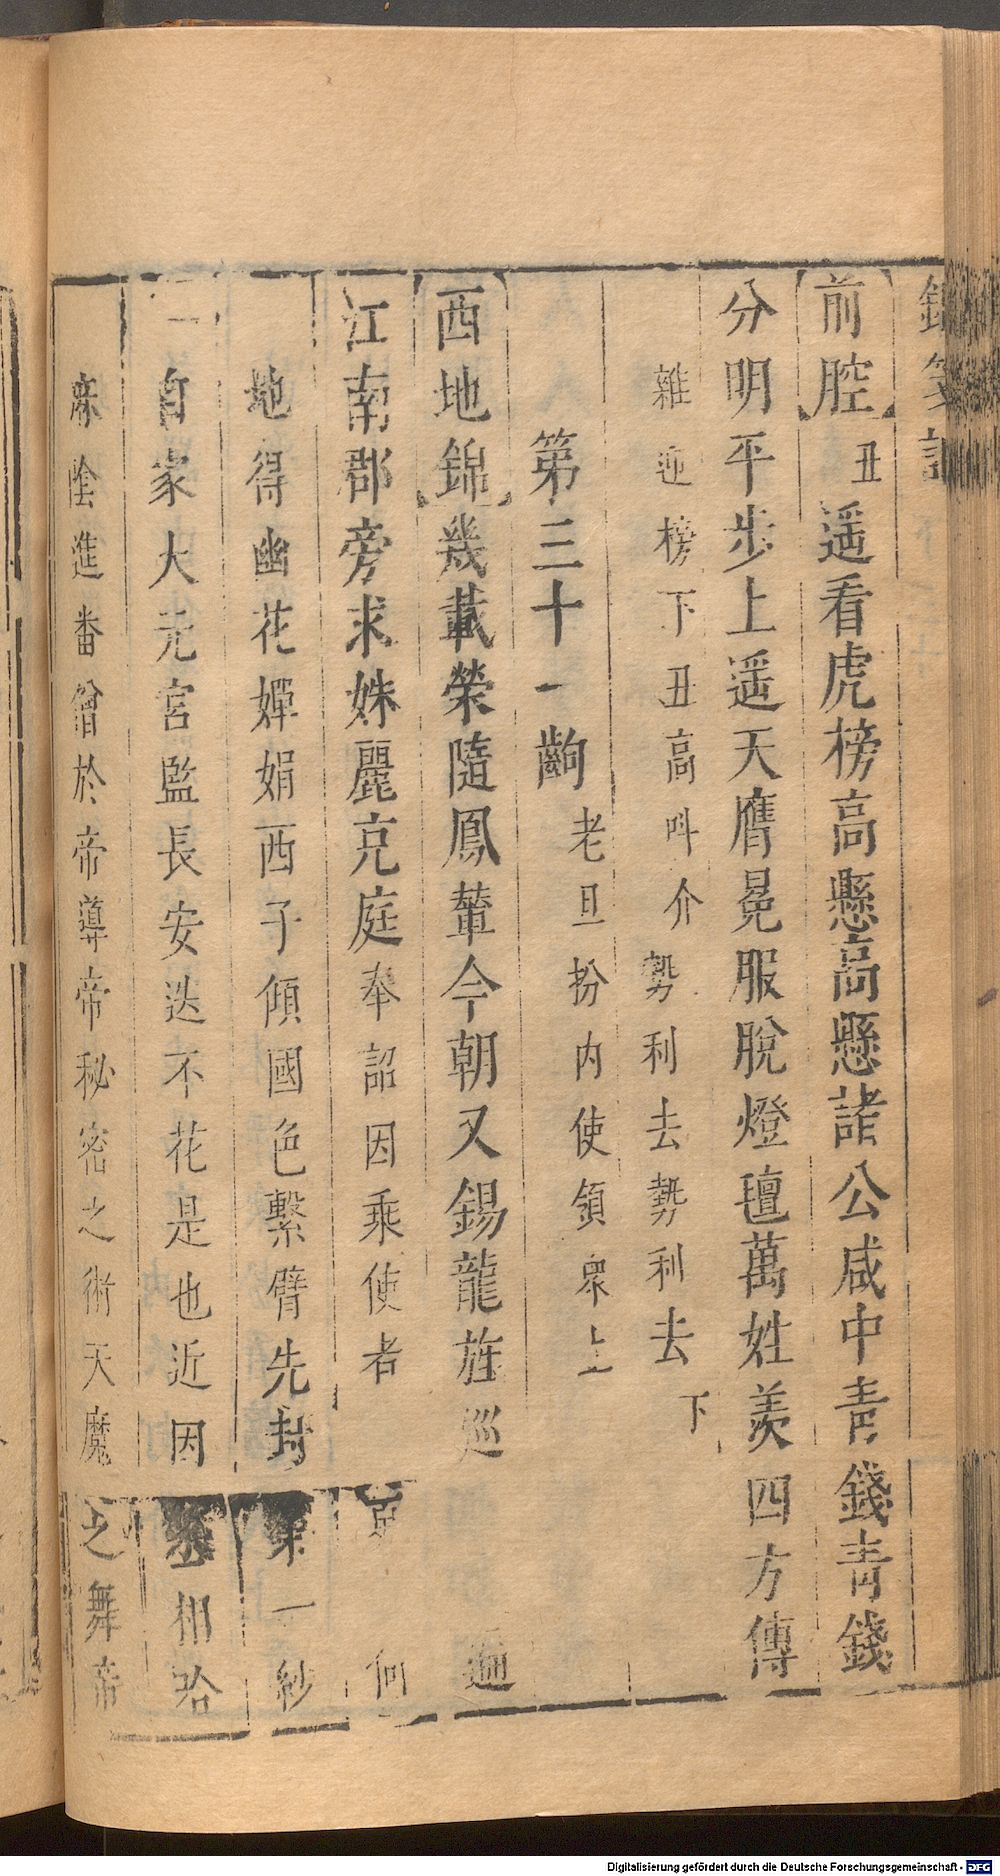 前腔丑遥看虎榜高懸高懸諸公咸中青錢青錢
分明平步上遥天膺冕服脫燈氊萬姓羨四方傳
雜迎榜下丑高呌介勢利去勢利去下
第三十一齣老旦扮内使領衆上
西地錦幾載榮隨鳳輦今朝又錫龍旌巡遍
江南郡旁求姝麗充庭奉詔因乘使者何
地得幽花嬋娟西子傾國色繫臂先封第一紗
自家大元宮監長安迭不花是也近因丞相哈
麻陰進番僧於帝導帝秘密之術天魔之舞帝
Digitalisierung gefördert durch die Deutsche Forschungsgemeinschaft - DFG